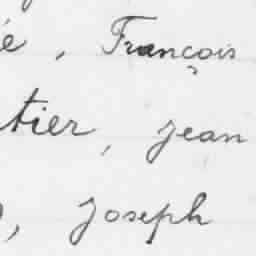 é, François
tier, jean
, joseph